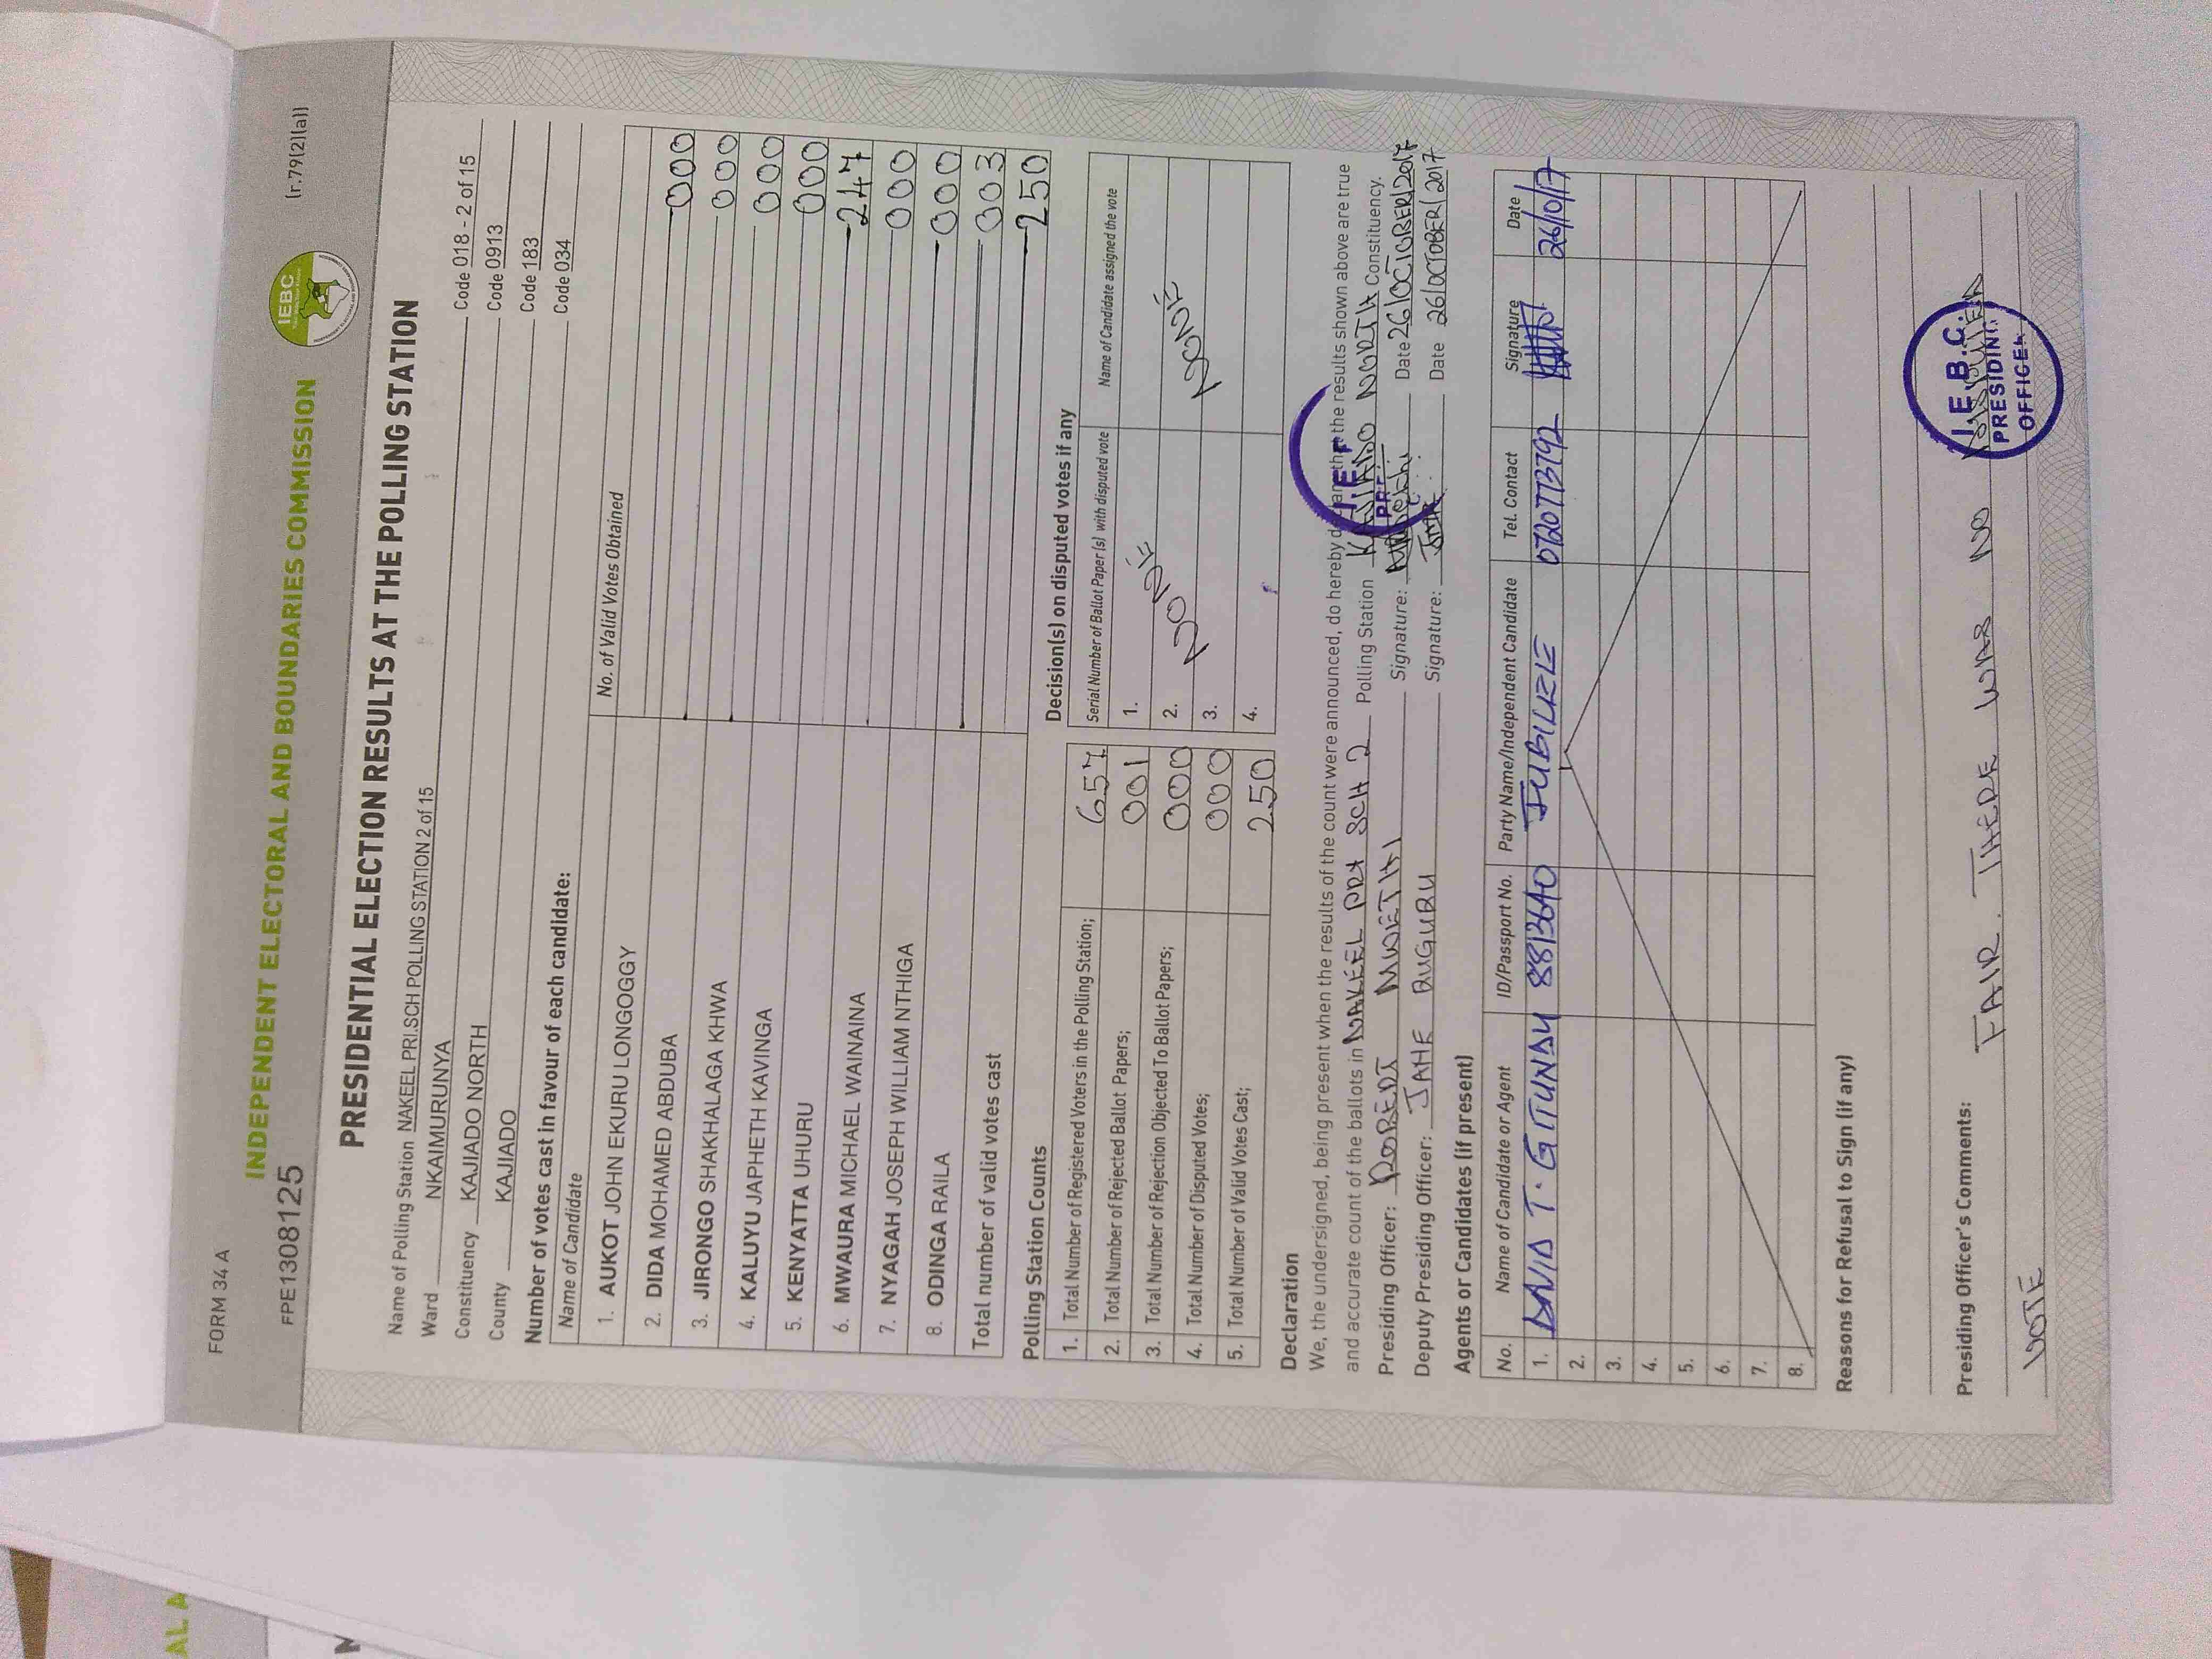 FORM 34 A
FPE1308125
(r.79(2)(a))
INDEPENDENT ELECTORAL AND BOUNDARIES COMMISSION
IEBC
PRESIDENTIAL ELECTION RESULTS AT THE POLLING STATION
Name of Polling Station NAKEEL PRI.SCH POLLING STATION 2 of 15 Code 018 - 2 of 15
Ward NKAIMURUNYA Code 0913
Constituency KAJIADO NORTH Code 183
County KAJIADO Code 034
Number of votes cast in favour of each candidate:
Name of Candidate No. of Valid Votes Obtained
1. AUKOT JOHN EKURU LONGOGGY 000
2. DIDA MOHAMED ABDUBA 000
3. JIRONGO SHAKHALAGA KHWA 000
4. KALUYU JAPHETH KAVINGA 000
5. KENYATTA UHURU 247
6. MWAURA MICHAEL WAINAINA 000
7. NYAGAH JOSEPH WILLIAM NTHIGA 000
8. ODINGA RAILA 003
Total number of valid votes cast 250
Polling Station Counts
1. Total Number of Registered Voters in the Polling Station; 657
2. Total Number of Rejected Ballot Papers; 001
3. Total Number of Rejection Objected To Ballot Papers; 000
4. Total Number of Disputed Votes; 000
5. Total Number of Valid Votes Cast; 250
Decision(s) on disputed votes if any
Serial Number of Ballot Paper (s) with disputed vote Name of Candidate assigned the vote
1.
2. NONE NONE
3.
4.
Declaration
We, the undersigned, being present when the results of the count were announced, do hereby that the results shown above are true
and accurate count of the ballots in NAKEEL PRY SCH 2 Polling Station KAJIADO NORTH Constituency.
Presiding Officer: ROBERT MURIETHI Signature: Date 26/OCTOBER/2017
Deputy Presiding Officer: JANE RUGURU Signature: Date 26/OCTOBER/2017
Agents or Candidates (if present)
No. Name of Candidate or Agent ID/Passport No. Party Name/Independent Candidate Tel. Contact Signature Date
1. DAVID T. GITUNDU 8813640 JUBILEE 0720773792 26/10/17
2.
3.
4.
5.
6.
7.
8.
Reasons for Refusal to Sign (if any)
Presiding Officer's Comments:
FAIR. THERE WAS NO DISPUTED
VOTE
I.E.B.C.
PRESIDING
OFFICER